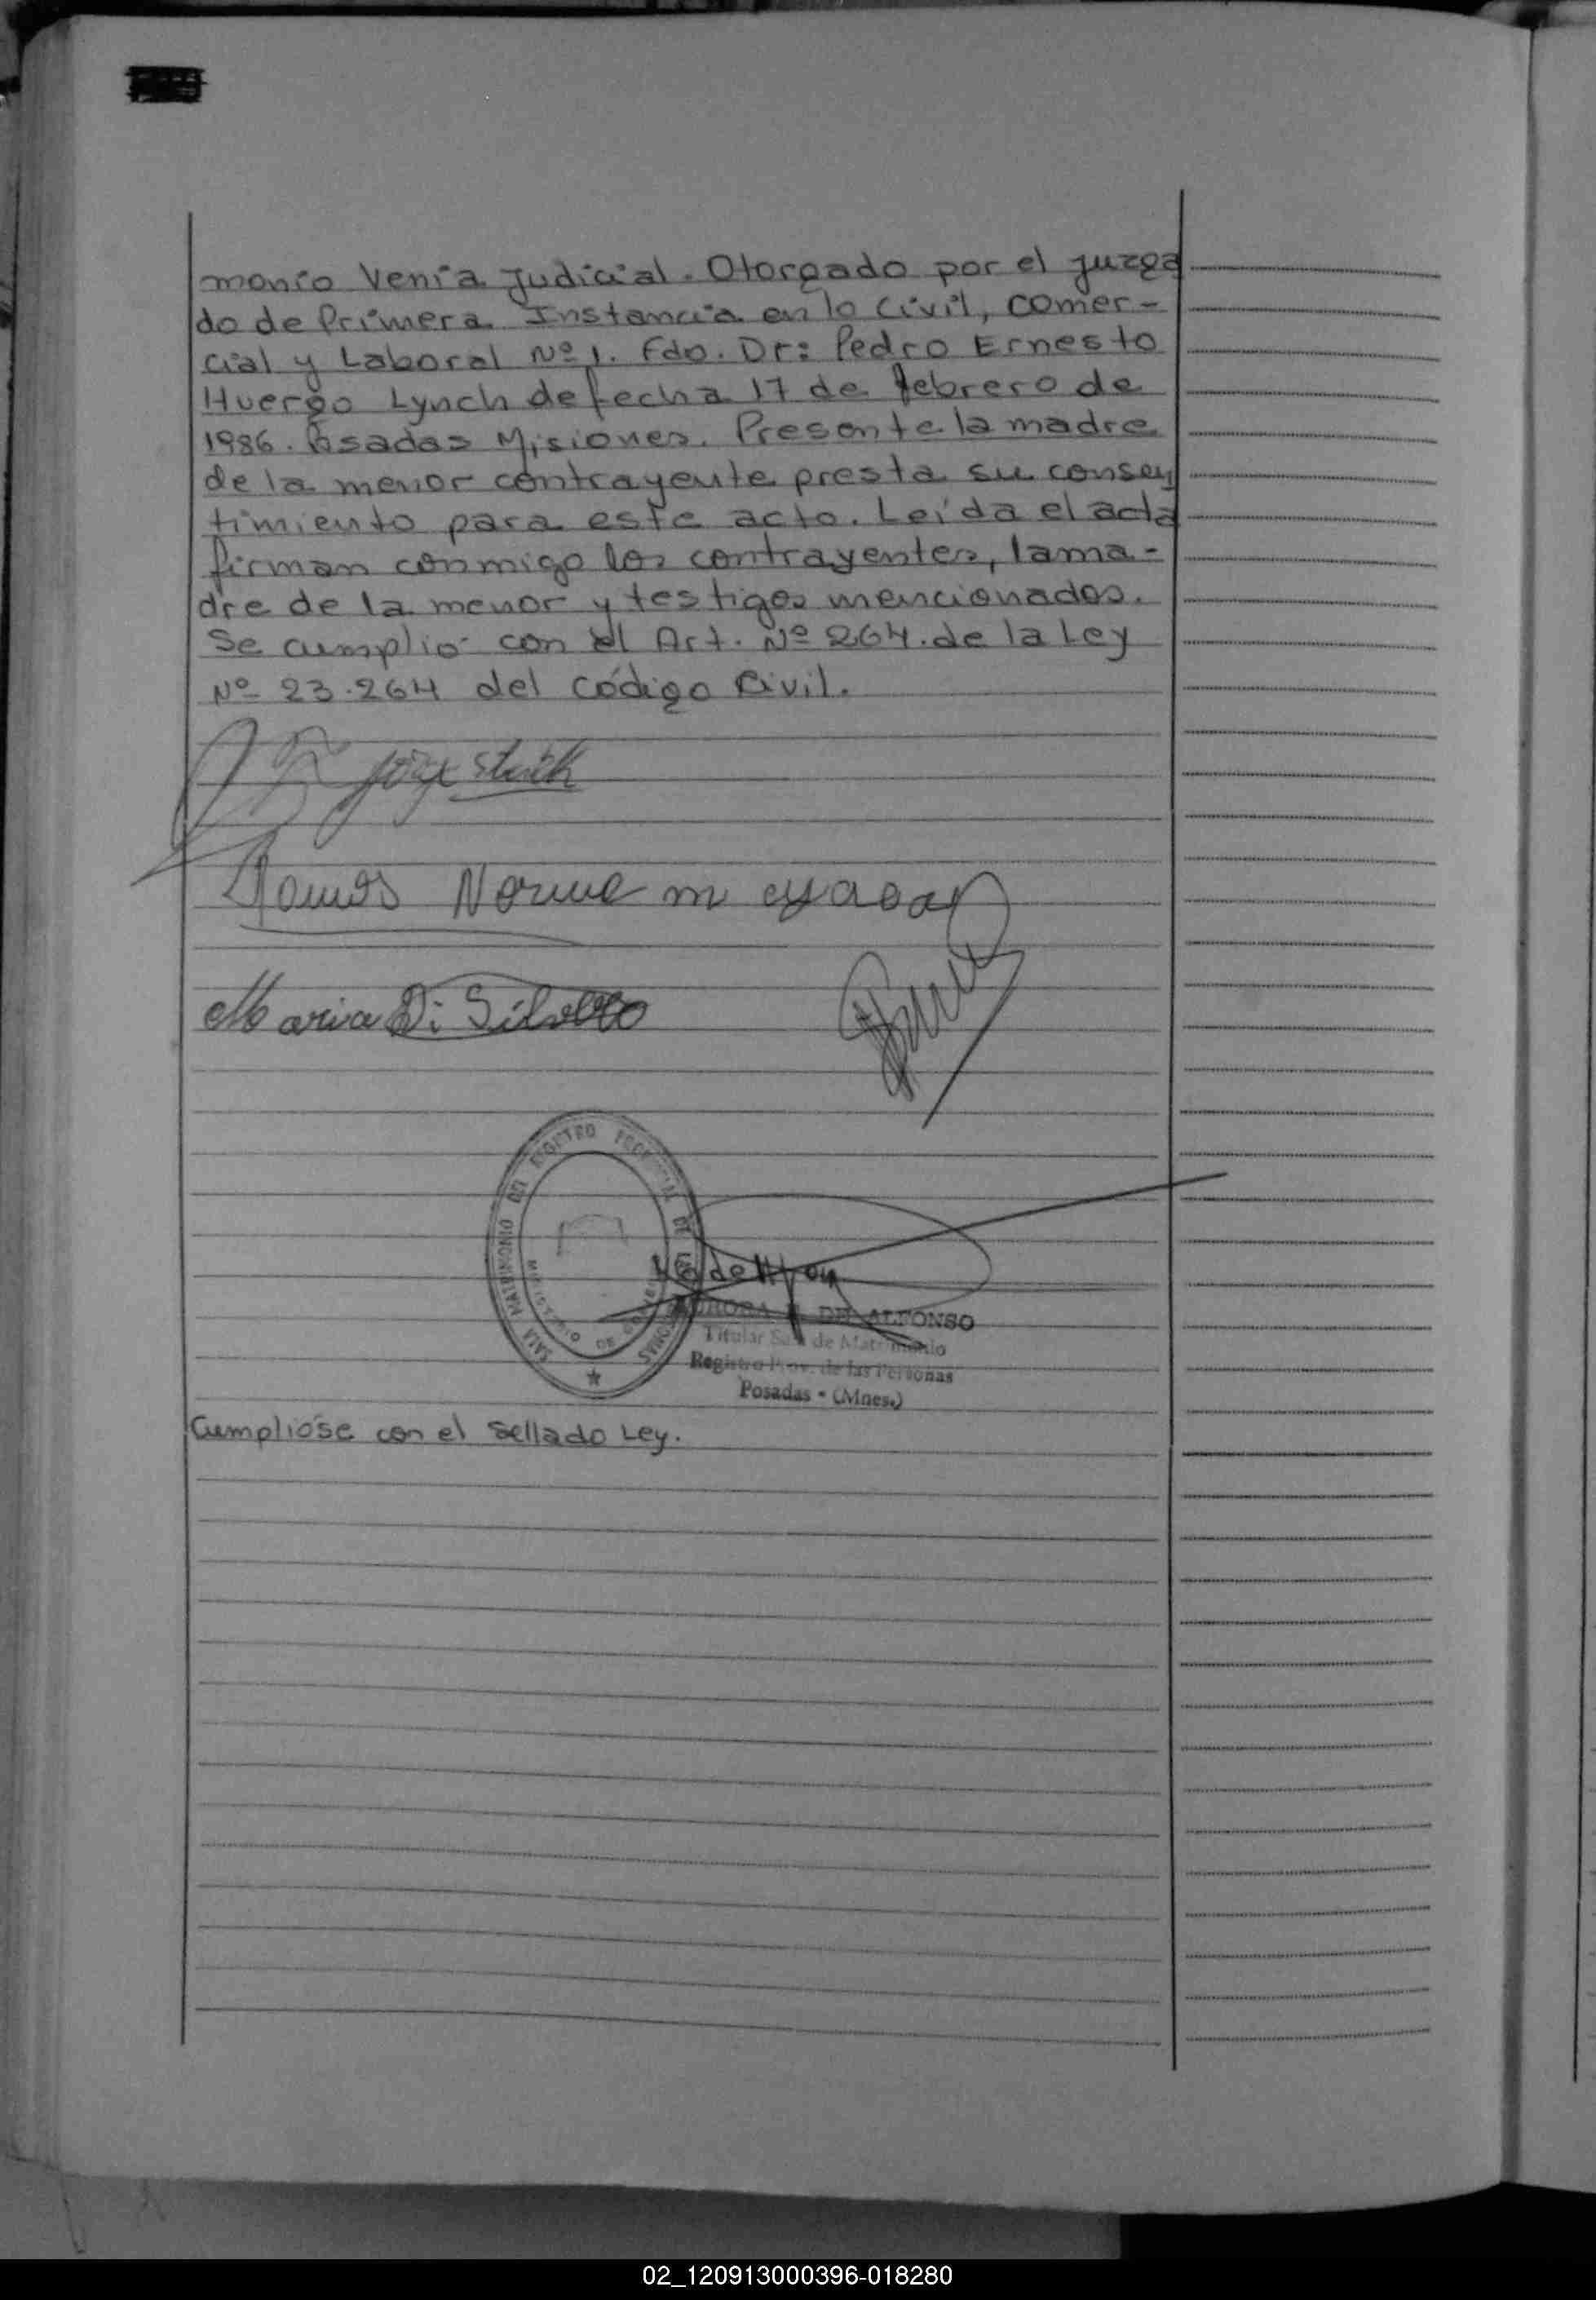 monio Venia Judicial. Otorgado por el Juzga
do de Primera Instancia en lo Civil, Comer-
cial y Laboral Nº 1. Fdo. Dr: Pedro Ernesto
Huergo Lynch de fecha 17 de febrero de
1986. Posadas Misiones. Presente la madre
de la menor contrayente presta su consen
timiento para este acto. Leída el acta
firman conmigo los contrayentes, la ma-
dre de la menor y testigos mencionados.
Se cumplió con el Art. Nº 264. de la Ley
Nº 23.264 del Código Civil.
Ramos Norma m
Maria Di
SALA MATRIMONIO DEL REGISTRO PROVINCIAL DE LAS PERSONAS
MINISTERIO DE GOBIERNO
AURORA DE ALFONSO
Titular Sala de Matrimonio
Registro Prov. de las Personas
Posadas - (Mnes.)
Cumpliose con el Sellado Ley.
02_120913000396-018280